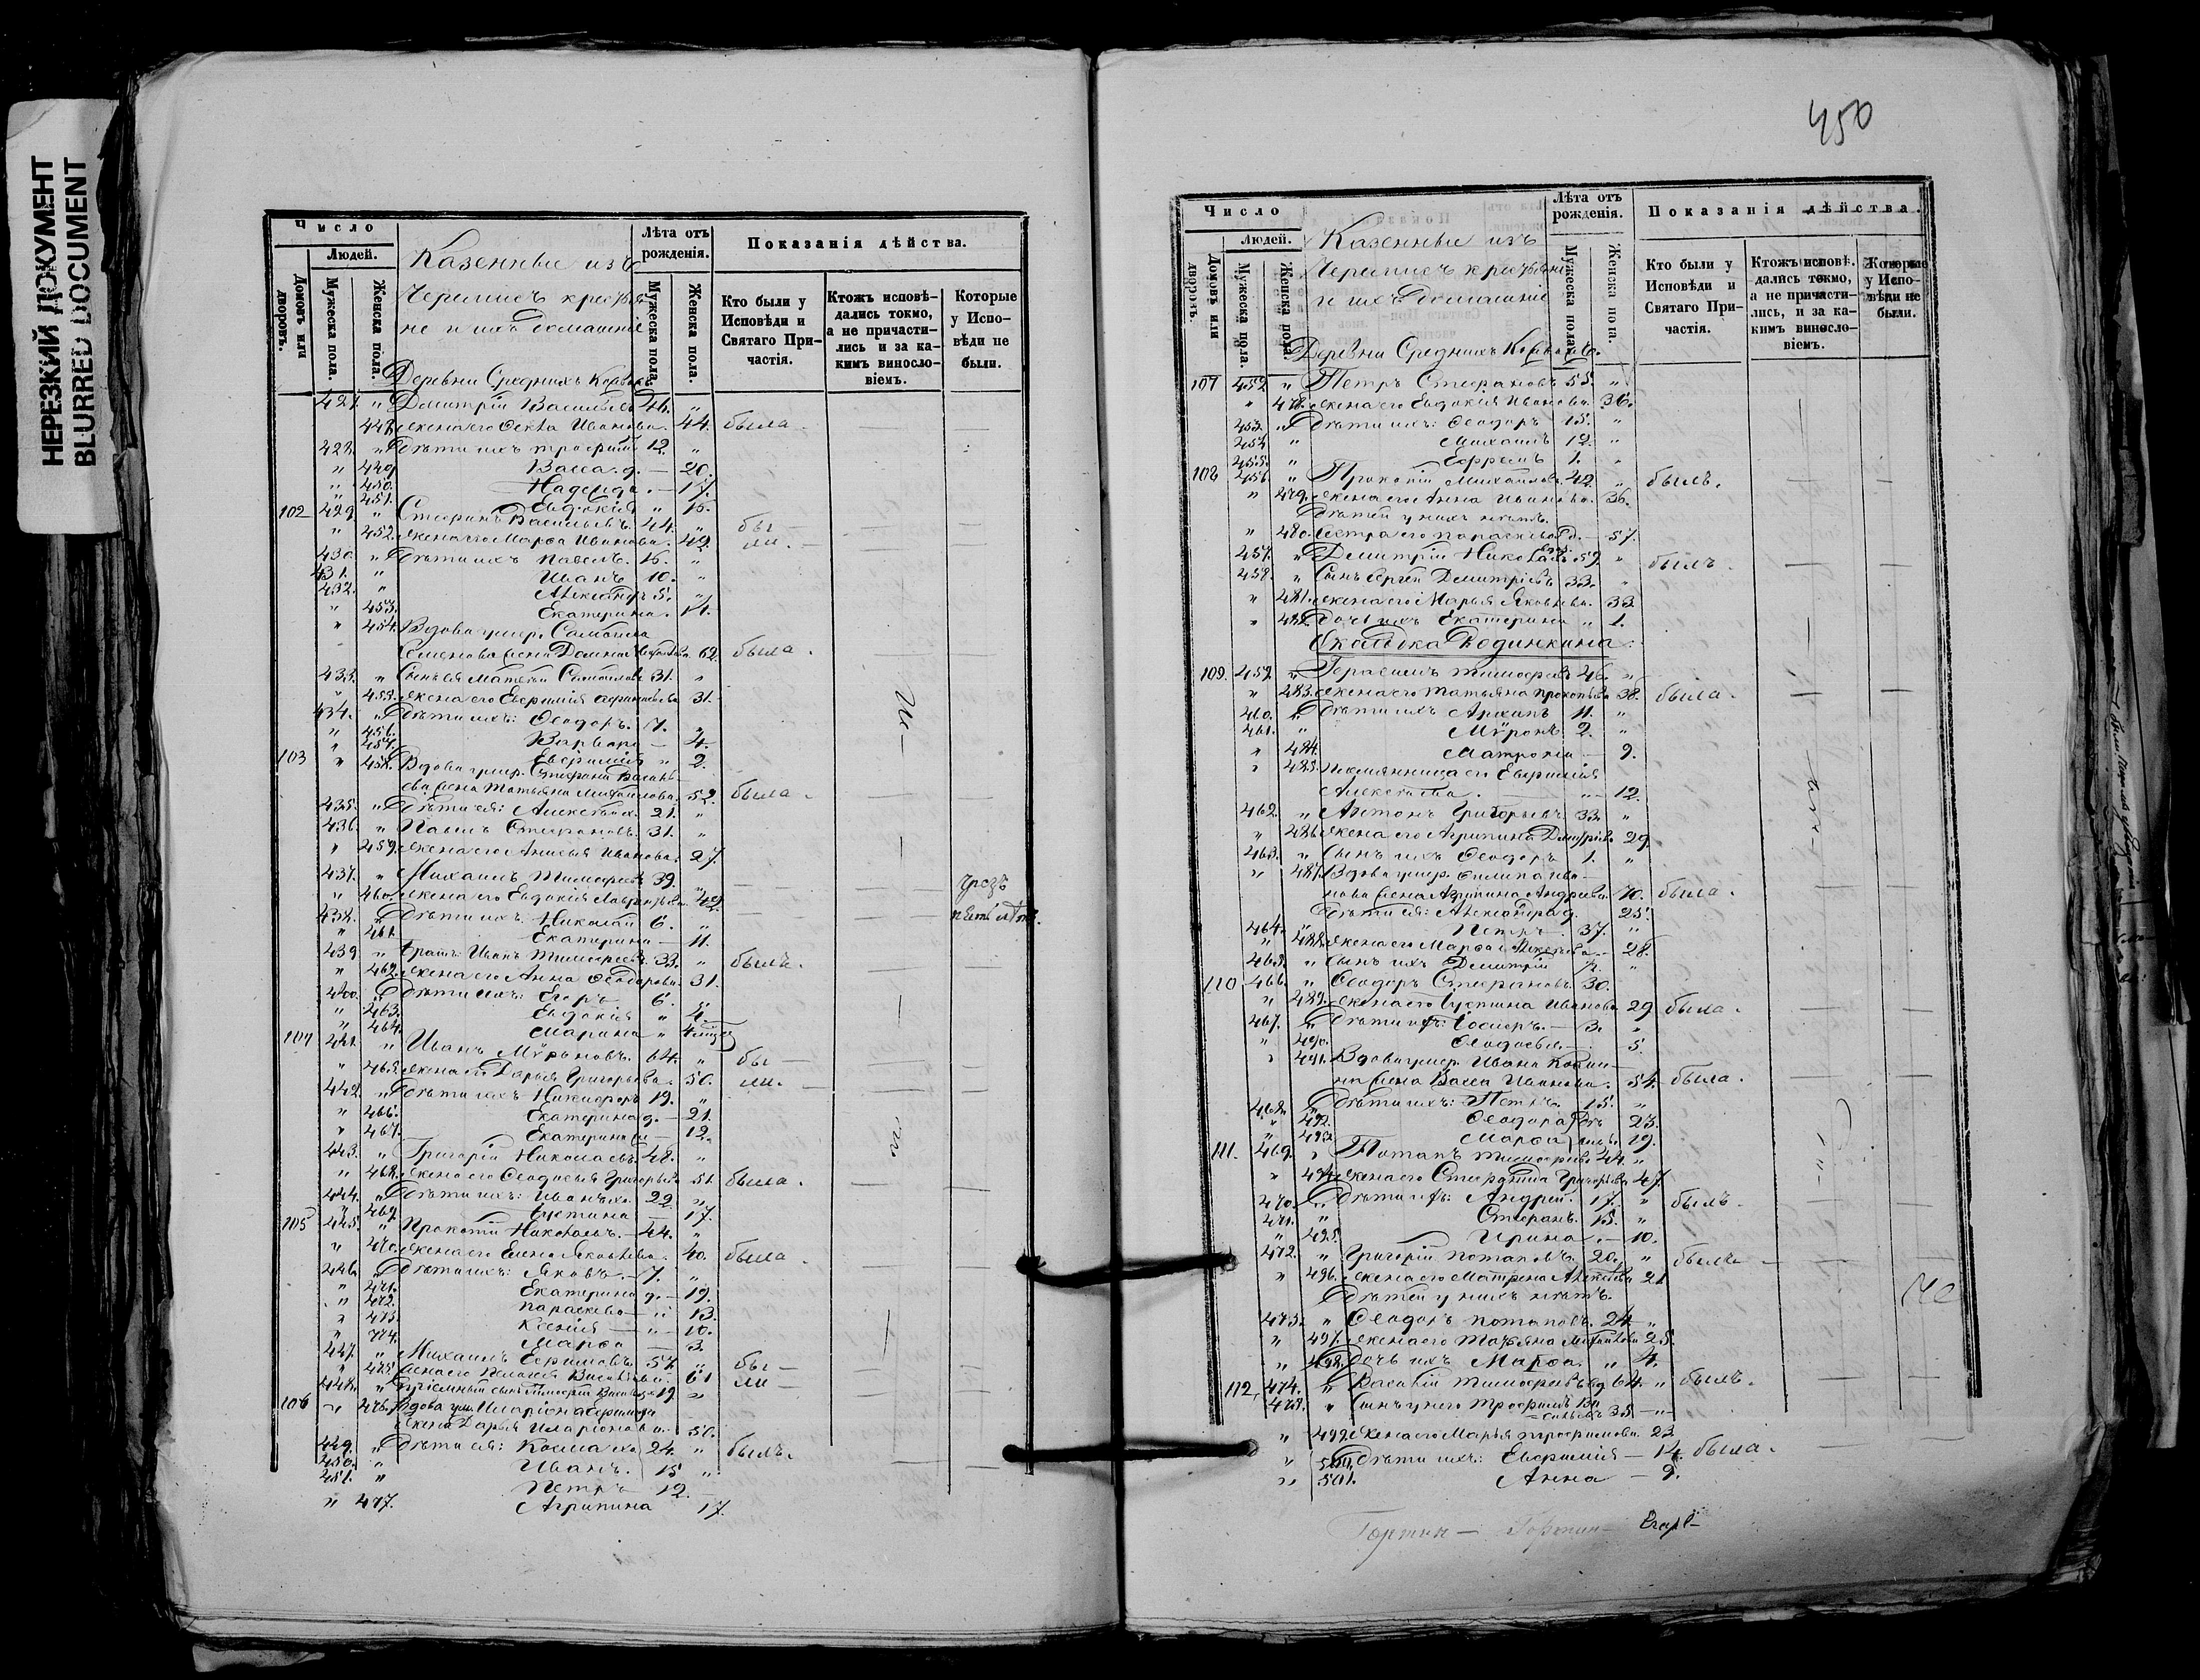 НЕРЕЗКИЙ ДОКУМЕНТ
BLURRED DOCUMENT
Число
Людей.
Домовъ или дворовъ.
Мужеска пола.
Женска пола.
Казенные изъ
Черемисъ крестья
не и ихъ домашніе
Деревни Среднихъ
Лѣта отъ рожденія.
Мужеска пола.
Женска пола.
Показанія дѣйства.
Кто были у Исповѣди и Святаго Причастія.
Ктожъ исповѣдались токмо, а не причастились и за какимъ винословіемъ.
Которые у Исповѣди не были.
" Димитрій Васильевъ 46. "
жена его Ѳекла Иванова. 44. была
428. " Дѣти ихъ Трофимъ 12. "
" 449. Васса д. — 20.
" 450. Надежда — 17.
" 451. Евдокія " 15.
102 429. " Стефанъ Васильевъ. 44. " бы —
" 452. жена его Марѳа Иванова. 42. ли. —
430. " Дѣти ихъ Павелъ. 15. "
431. " Иванъ 10. "
432. " Александръ 5. "
" 453. Екатерина. 11.
" 454. Вдова умер. Самоила
Семенова жена Домна 62. была.
433. " Сынъ ея Матвей Самойловъ 31. "
" 455. жена его Евфимія 31.
434. " Дѣти ихъ: Ѳеодоръ. 7. "
" 456. Варвара — 4.
" 457. Евфимія " 2.
103 " 458. Вдова умер. Стефана Василь
ева жена Татьяна Михайлова. 52. была.
435. " Дѣти ея: Алексѣй 21. "
436. " Павелъ Стефановъ. 31. "
" 459. жена его Анисья Иванова. 27.
437. " Михаилъ Тимофеевъ 39. " чрезъ
" 460. жена его Евдокія 42.
438. " Дѣти ихъ Николай 6. "
" 461. Екатерина — 11.
439. " Братъ Иванъ Тимофеевъ. 33. " былъ.
" 462. жена его Анна Ѳеодорова. 31.
440. " Дѣти ихъ: Егоръ 6. "
" 463. Евдокія " 4.
" 464. Марина "
104 441. " Иванъ Мѵроновъ. 64. " бы —
" 465. жена его Дарья Григорьева. 50. ли. —
442. " Дѣти ихъ Никифоръ 19. "
" 466. Екатерина д. — 21.
" 467. Екатерина — 12.
443. " Григорій Николаевъ. 48. "
" 468. жена его Ѳеодосья Григорьева 51. была.
444. " Дѣти ихъ: Иванъ 22. "
" 469. Іустина — 17.
105 445. " Прокопій Николаевъ. 44. "
" 470. жена его Елена Яковлева. 40. была
446. " Дѣти ихъ: Яковъ. 7. "
" 471. Екатерина д. — 19.
" 472. Параскева — 13.
" 473. Ксенія — 10.
" 474. Марѳа — 3.
447. " Михаилъ Ефимовъ 57. " бы —
" 475. жена его Пелагія Васильева. 61 ли —
448. " Пріемный сынъ Тимофей 19 "
106 " 476. Вдова умер. Иларіона Ефимова
жена Дарья Иларіонова. 50.
449. " Дѣти ея: Козма 24. " былъ.
450. " Иванъ. 15 "
451. " Петръ 12.
" 477. Агрипина 17.
450
Число
Людей.
Домовъ или дворовъ.
Мужеска пола.
Женска пола.
Казенные изъ
Черемисъ крестьяне
и ихъ домашніе
Деревни Среднихъ
Лѣта отъ рожденія.
Мужеска пола.
Женска пола.
Показанія дѣйства.
Кто были у Исповѣди и Святаго Причастія.
Ктожъ исповѣдались токмо, а не причастились, и за какимъ винословіемъ.
Которые у Исповѣди не были.
107 452 " Петръ Стефановъ 55. "
" 478. жена его Евдокія Иванова. 36.
453. " Дѣти ихъ: Ѳеодоръ 15. "
454. " Михаилъ 12. "
455. " Ефремъ 1. "
108 456. " Прокопій Михайловъ 42. " былъ.
" 479. жена его Анна Иванова. 36.
Дѣтей у нихъ нѣтъ.
" 480. Сестра его Параскева д. — 57.
457. " Димитрій Николаевъ 59. " былъ
458. " Сынъ Сергей Димитріевъ 33. "
" 481. жена его Марья Яковлева. 33
" 482. Дочь ихъ Екатерина " 1.
109. 459. " Герасимъ Тимофеевъ 46. "
" 483. жена его Татьяна Прокопьева 38. была.
460. " Дѣти ихъ Архипъ 11. "
461. " Мѵронъ 2. "
" 484. Матрона — 9.
" 485. Племянница его Евфимія
Алексѣева. — 12.
462. " Антонъ Григорьевъ 33. "
" 486. жена его Агрипина Димитріева 29.
463. " Сынъ ихъ Ѳеодоръ 1. "
" 487. Вдова умер.
жена Агрипина Андреева 70. была.
Дѣти ея: Александра д. 25.
464. " Петръ 37. "
" 488. жена его Марѳа Алексѣева — 28.
465. " Сынъ ихъ Димитрій "
110 466. " Ѳеодоръ Стефановъ. 30.
" 489. жена его Іустина Иванова 29. была.
467. " Дѣти ихъ: Іосифъ. — 3. "
" 490. Ѳеодосья — 5.
" 491. Вдова умер. Ивана Козми
на жена Васса Иванова. 54. была.
468. " Дѣти ихъ: Петръ. 15. "
" 492. Ѳеодора 23.
" 493. Марѳа 19.
111. 469. " Потапъ Тимофеевъ 44. "
" 494. жена его Стефанида Григорьева 47.
470. " Дѣти ихъ: Андрей. 17. " былъ.
471. " Стефанъ. 15. "
" 495. Ирина. — 10.
472. " Григорій Потаповъ 20. " былъ
" 496. жена его Матрена Алексѣева 21
Дѣтей у нихъ нѣтъ.
473. " Ѳеодоръ Потаповъ. 24. "
" 497. жена его Татьяна Михайлова 25.
" 498. Дочь ихъ Марѳа. " 4.
112, 474. " Василій Тимофеевъ вд 64. " былъ.
475. " Сынъ у него Трофимъ Ва
сильевъ 35 — "
" 499. жена его Марья Трофимова. 23
" 500. Дѣти ихъ: Евфимія — 14. была.
" 501. Анна — 9.